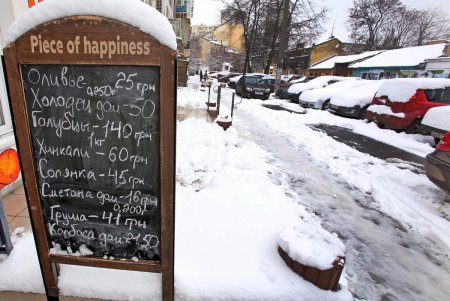 Piece of happiness
Оливье 25 грн
Холодец дом 50
Голубци - 140 грн
1 кг
Хинкали - 60 грн
Солянка - 45 грн
Сметана дом - 16 грн
0,200
Груша - 41 грн
Колбаса дом - 150